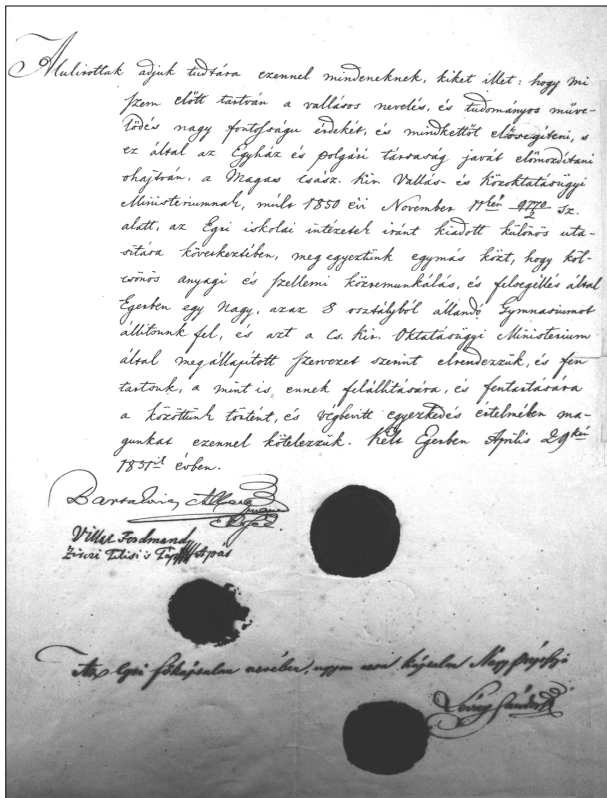 Alulirottak adjuk tudtára ezennel mindeneknek, kiket illet: hogy mi
szem előtt tartván a vallásos nevelés, és tudományosműve-
lődés nagy fontosságu érdekét, és mindkettőt elősegiteni, s
ez által az Egyház és polgári társaság javát előmozditani
ohajtván, a Magas Csász. Kir. Vallás- és Közoktatásügyi
Ministeriumnak, múlt 1850 évi November 11kéni 9770/2 sz.
alatt, az Egri iskolai intézetek iránt kiadott különös uta-
sitása következtében, megegyeztünk egymás közt, hogy köl-
csönös anyagi és szellemi közremunkálás, és felsegéllés által
Egerben egy Nagy, azaz 8 osztályból állandó Gymnasiumot
állitunk fel, és azt a Cs. Kir. Oktatásügyi Ministerium
által megállapitott szervezet szerint elrendezzük, és fen
tartsuk; a mint is ennek felállitására, és fentartására
a közöttünk történt, és végbevitt egyezkedés értelmében ma-
gunkat ezennel kötelezzük. Kelt Egerben Április 29kén
1851ik évben.
Bartakovics
Villax Ferdinand
Zirczi Pilisi s Pásztói Apát
Az Egri főkáptalan nevében, ugyan azon káptalan Nagy prépostja
Lévay Sándor